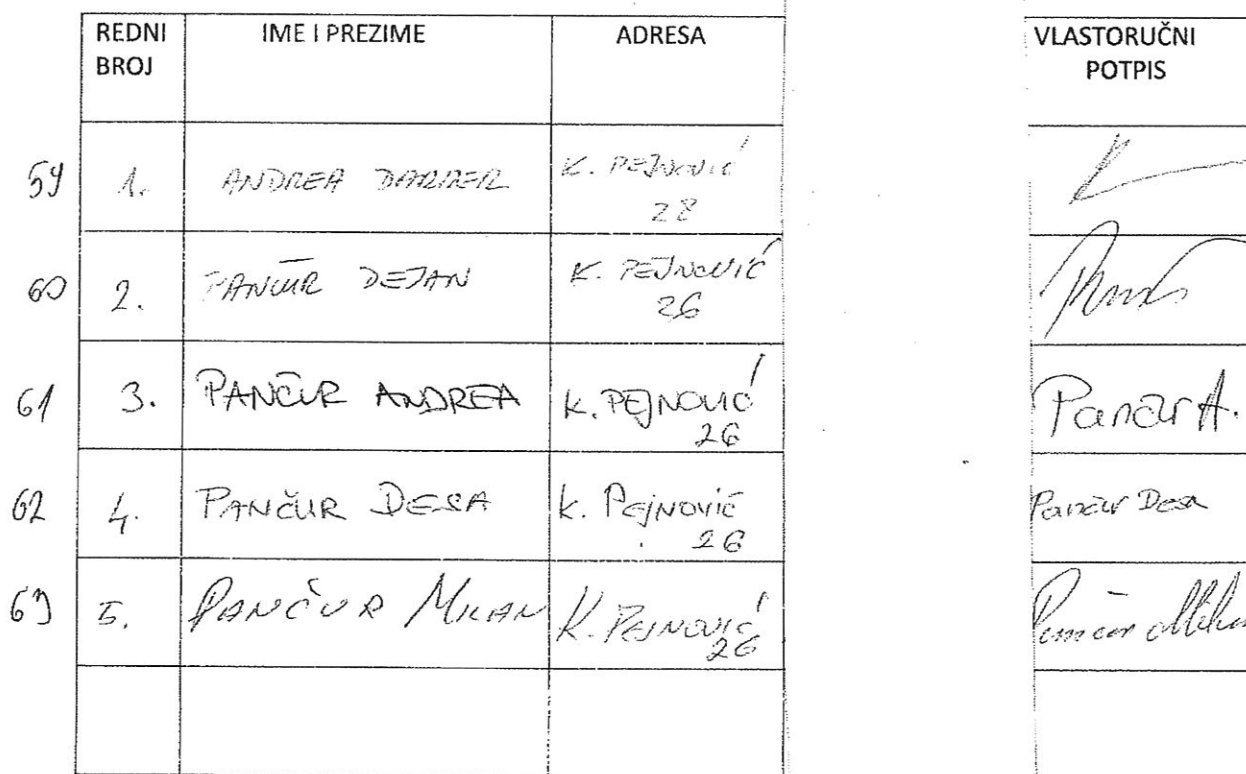 REDNI BROJ IME I PREZIME ADRESA VLASTORUČNI POTPIS
59 1. ANDREA K. PEJNOVIĆ 28
60 2. PANČUR DEJAN K. PEJNOVIĆ 26
61 3. PANČUR ANDREA K. PEJNOVIĆ 26 Pančur A.
62 4. PANČUR DESA K. PEJNOVIĆ 26 Pančur Desa
63 5. PANČUR MILAN K. PEJNOVIĆ 26 Pančur Milan